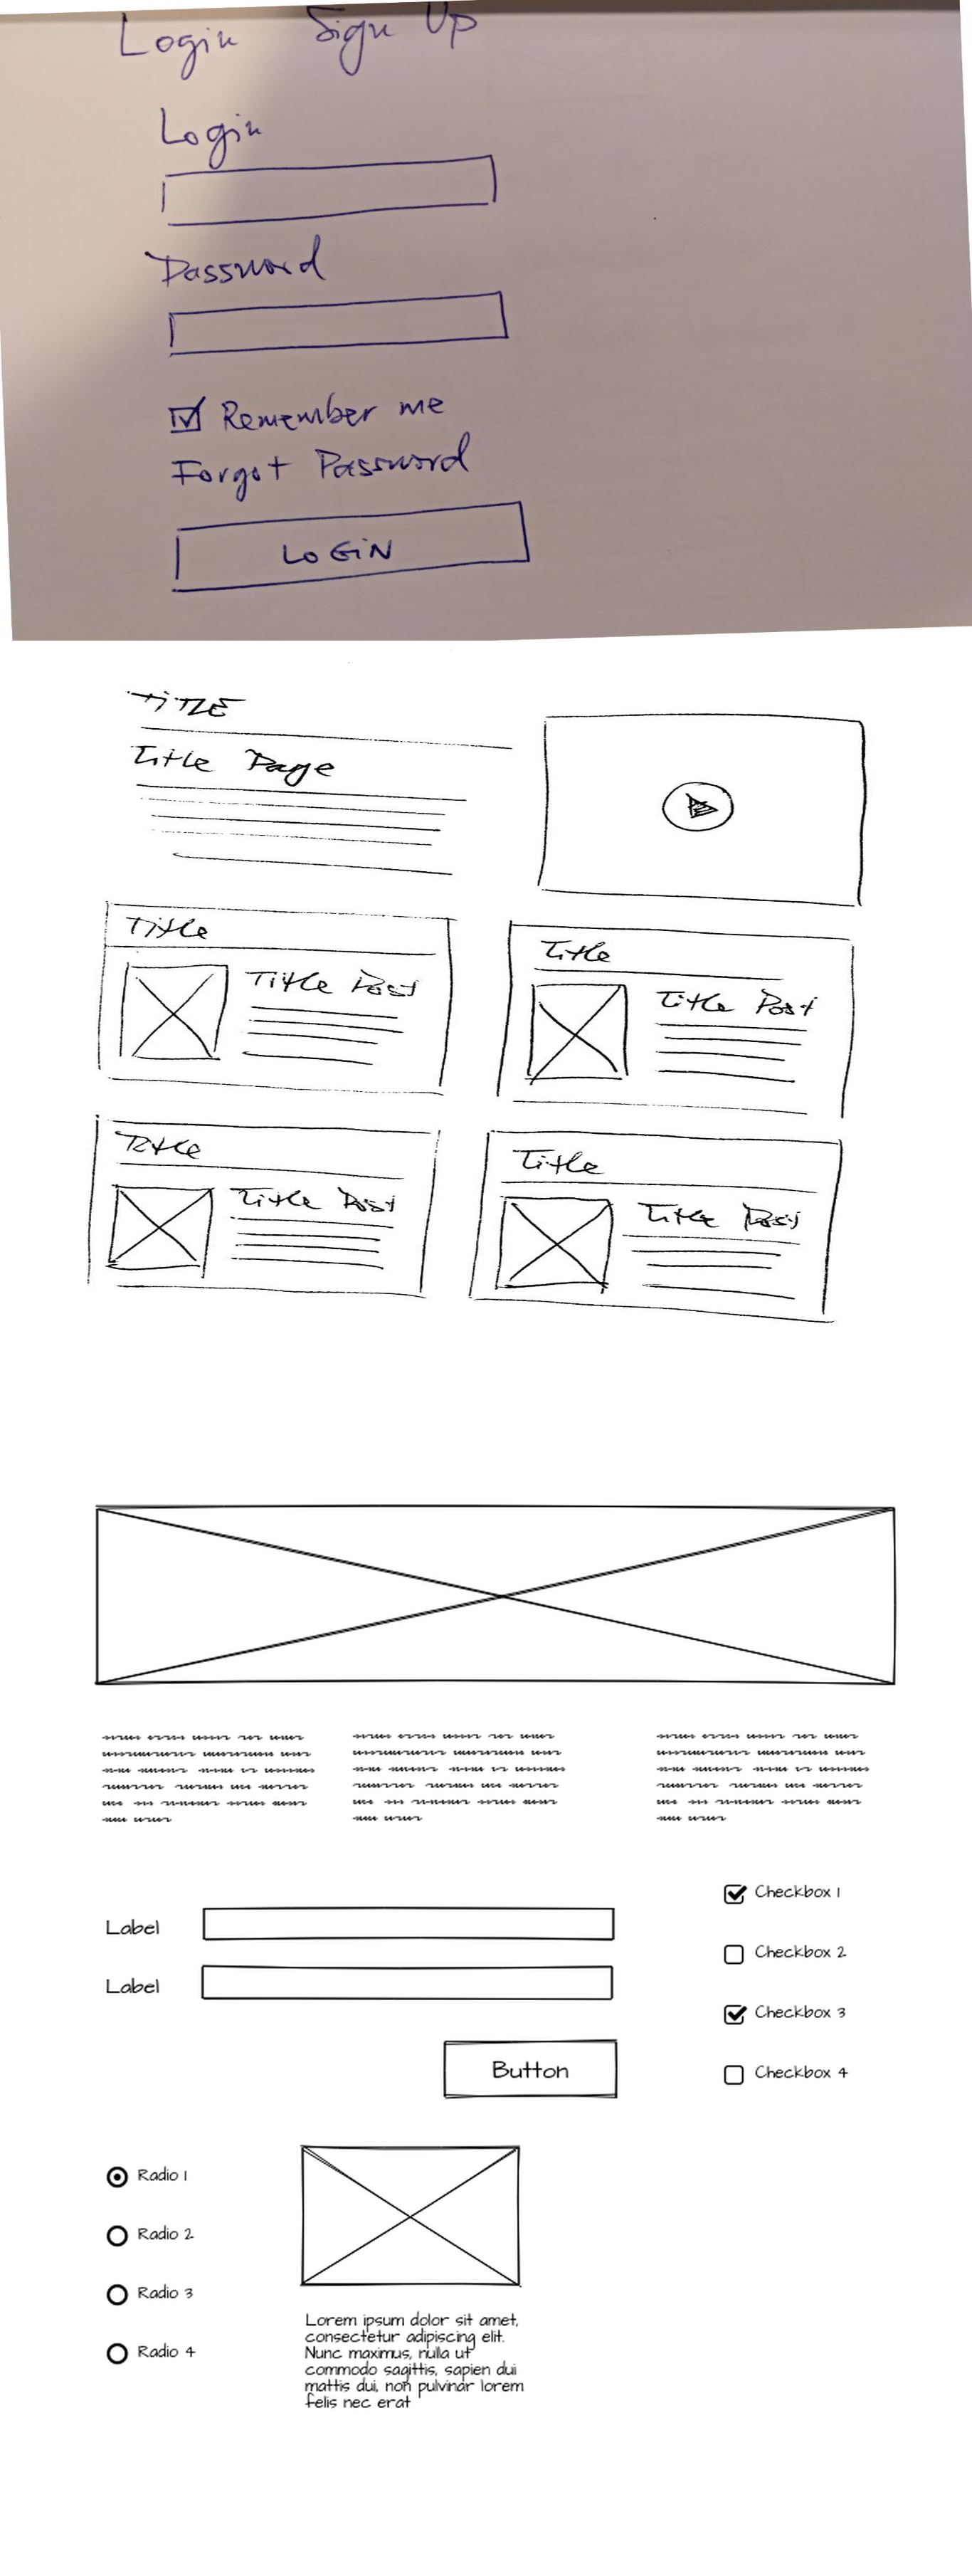 Login Sign Up
Login
Password
Remember me
Forgot Password
LOGIN
TITLE
Title Page
Title
Title Post
Title
Title Post
Title
Title Post
Title
Title Post
Label
Label
Button
Checkbox 1
Checkbox 2
Checkbox 3
Checkbox 4
Radio 1
Radio 2
Radio 3
Radio 4
Lorem ipsum dolor sit amet,
consectetur adipiscing elit.
Nunc maximus, nulla ut
commodo sagittis, sapien dui
mattis dui, non pulvinar lorem
felis nec erat